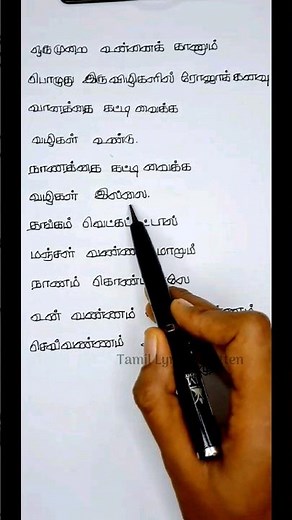 ஒருமுறை உன்னைக் காணும்
பொழுது இருவிழிகளில் ரோஜாக் கனவு
வானத்தை கட்டி வைக்க
வழிகள் உண்டு.
நாணத்தை கட்டி வைக்க
வழிகள் இல்லை.
தங்கம்
மஞ்சள்
நாணம்
உன் வண்ணம்
செவ்வண்ணம்
Tamil Ly